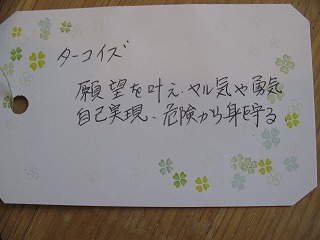 ターコイズ
願望を叶え、ヤル気や勇気
自己実現、危険から身を守る